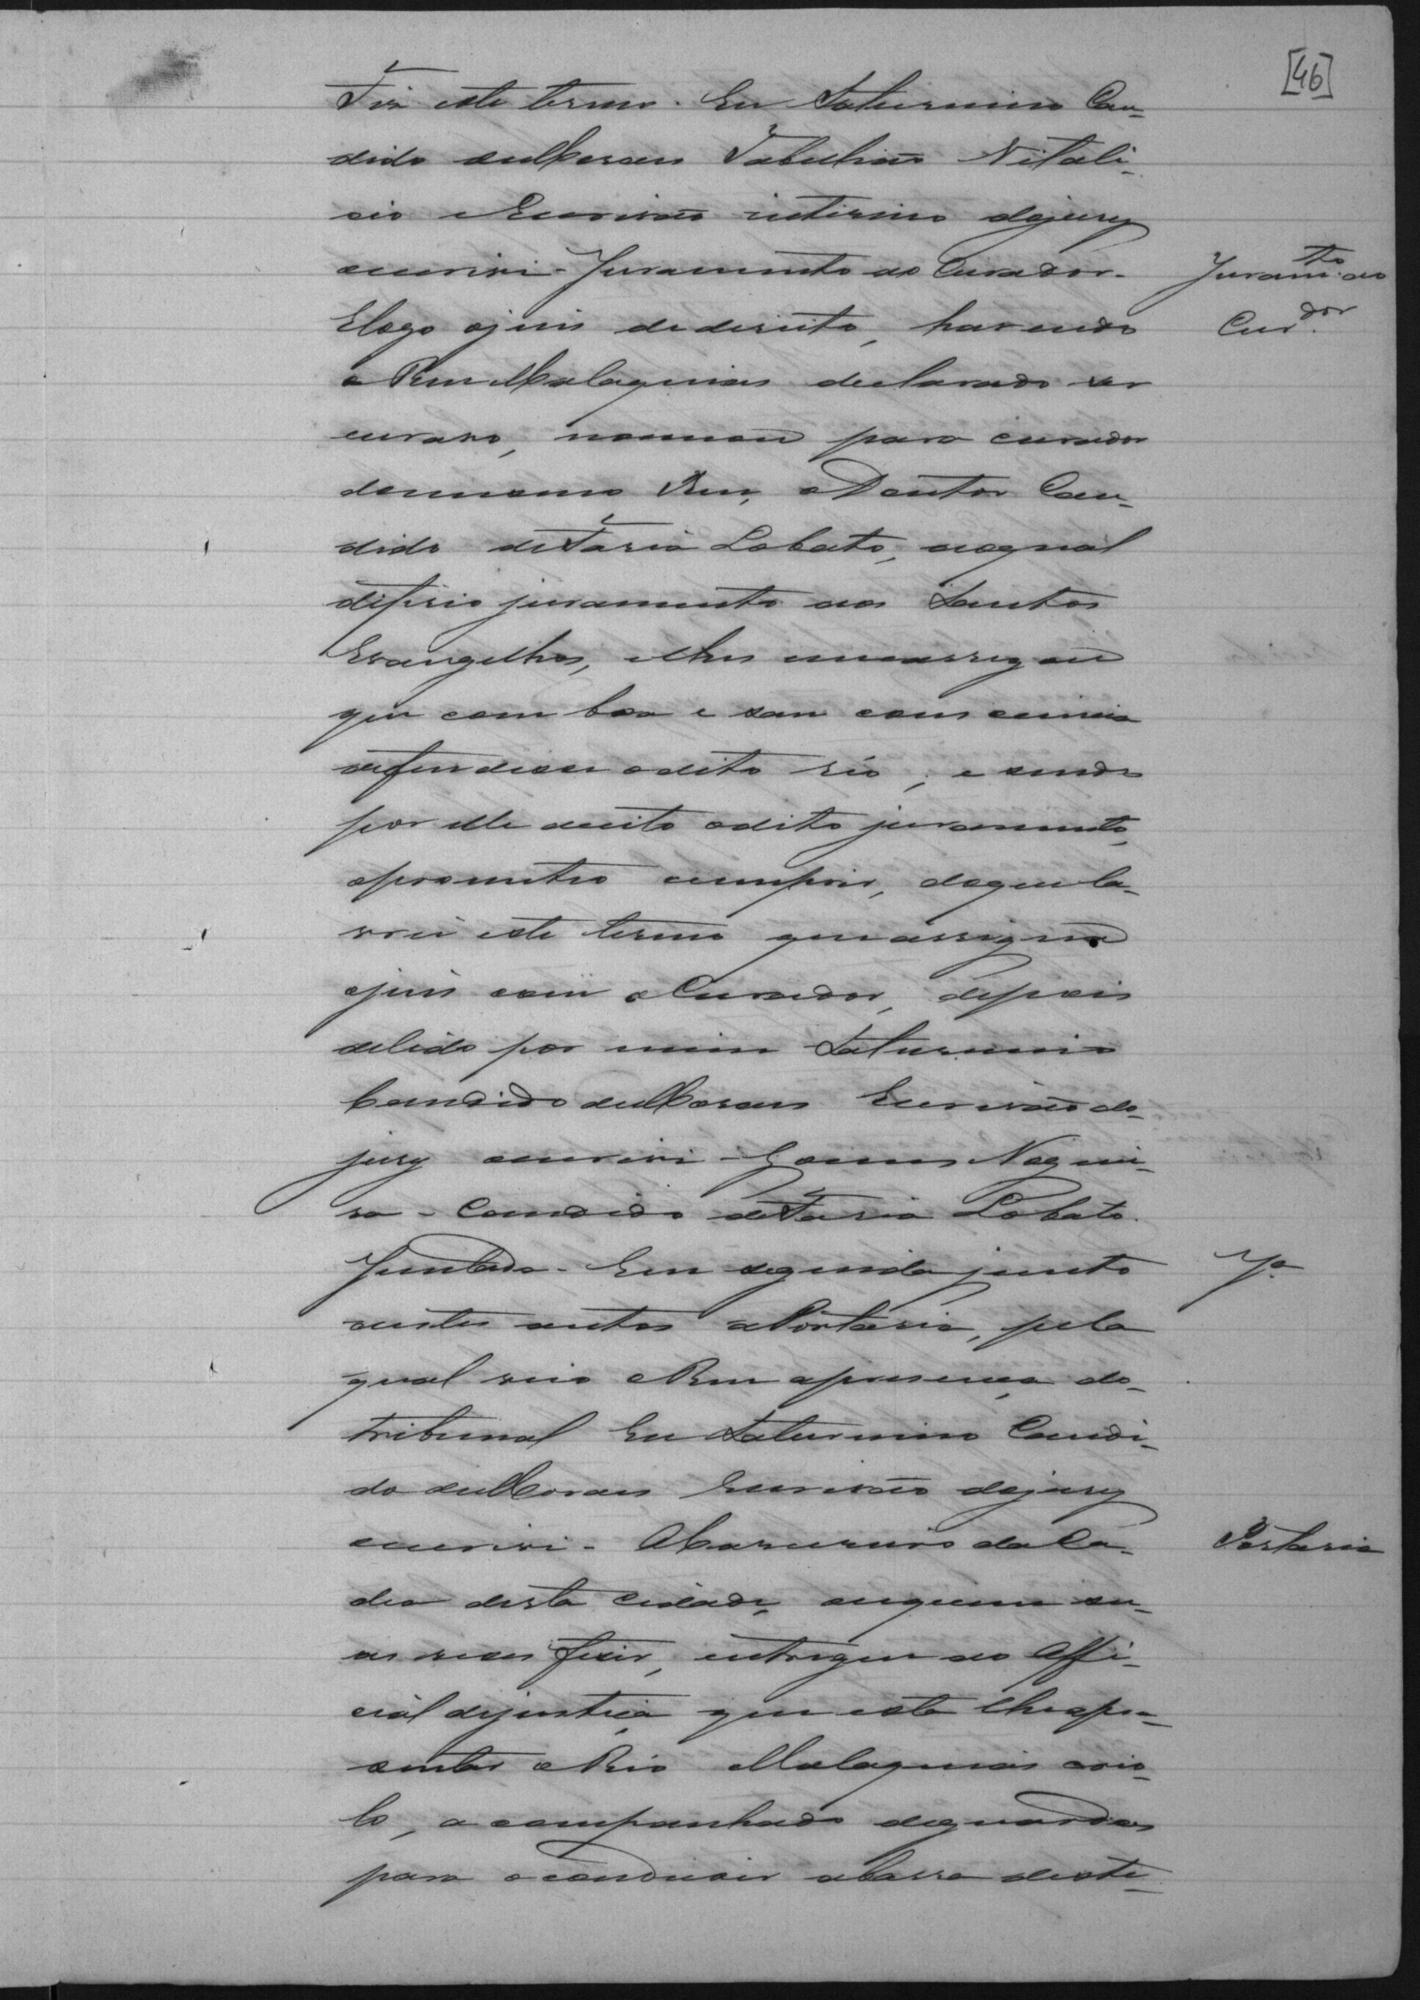 [46]
Fiz este termo. Eu Saturnino Can-
dido de Moraes Tabelliaõ Vitali-
cio e Escrivaõ interino dojury
escrevi - Juramento ao Curador -
Juram.to ao
Cur.dor
Elogo ojuis dedereito, havendo
o Reu Malaquias declarado ser
escravo, nomeou para curador
domesmo Reu, o Doutor Can-
dido deFaria Lobato, aoqual
deferio juramento aos Santos
Evangelhos, elhes encarregou
que com boa e san consciencia
defendesse odito réo, e sendo
por elle aceito odito juramento,
oprometteo cumprir, doque la-
vrei este termo queassigna
ojuis com oCurador, depois
delido por mim Saturnino
Candido deMoraes Escrivaõ do
jury escrevi - Gomes Noguei-
ra - Candido deFaria Lobato.
Juntada - Em seguida junto
J.a
aestes autos aPortaria, pela
qual veio oReu apresença do
tribunal Eu Saturnino Candi-
do deMoraes Escrivaõ dojury
escrevi - OCarcereiro da Ca-
Portaria
dea desta cidade, aoquem su-
as vezes fizer, entregue ao Offi-
cial dejustiça que esta lheapre-
sentar oRéo Malaquias criou-
lo, acompanhado deguardas
para oconduzir abarra deste